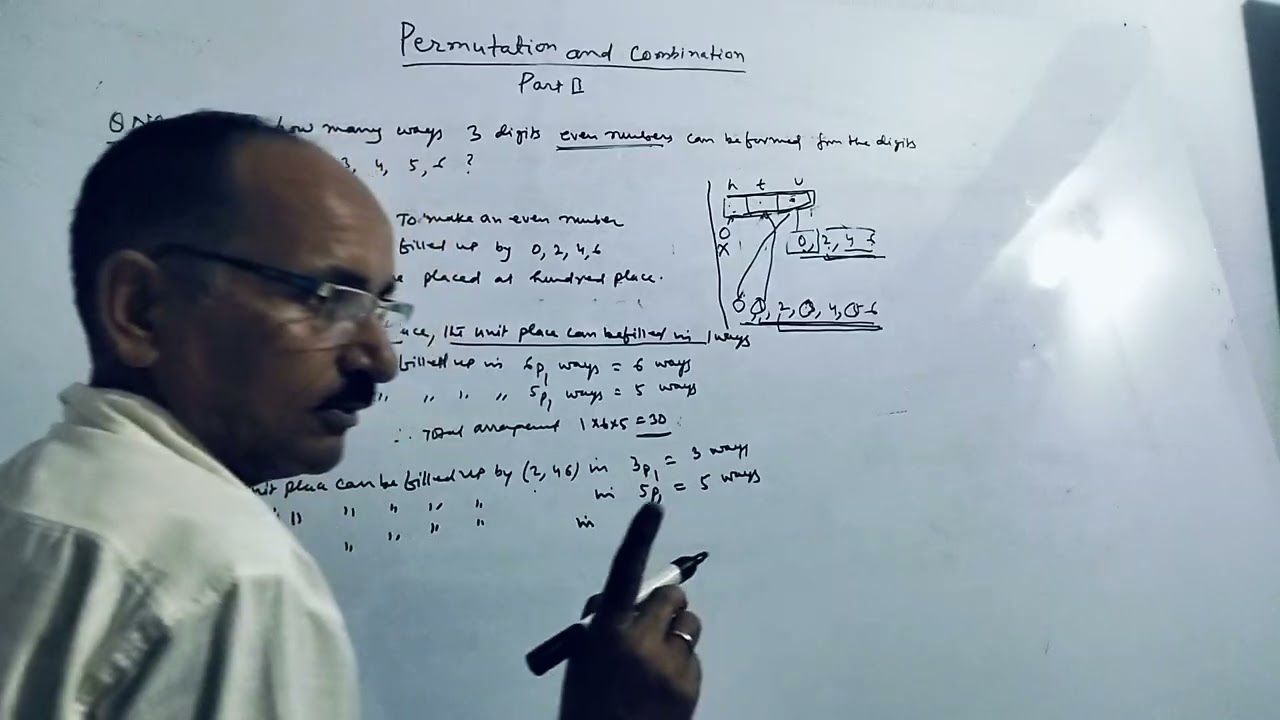 Permutation and Combination
Part II
how many ways 3 digits even numbers can be formed from the digits
3, 4, 5, 6 ?
h t u
To make an even number
filled up by 0, 2, 4, 6
0
X
0, 2, 4 6
placed at hundred place.
0 1, 2, 3, 4, 5 6
unit place can be filled in 1 ways
filled up in 6p1 ways = 6 ways
" " " " 5p1 ways = 5 ways
∴ Total 1x6x5 = 30
place can be filled up by (2, 4 6) in 3p1 = 3 ways
" " " " " in 5p1 = 5 ways
" " " " in